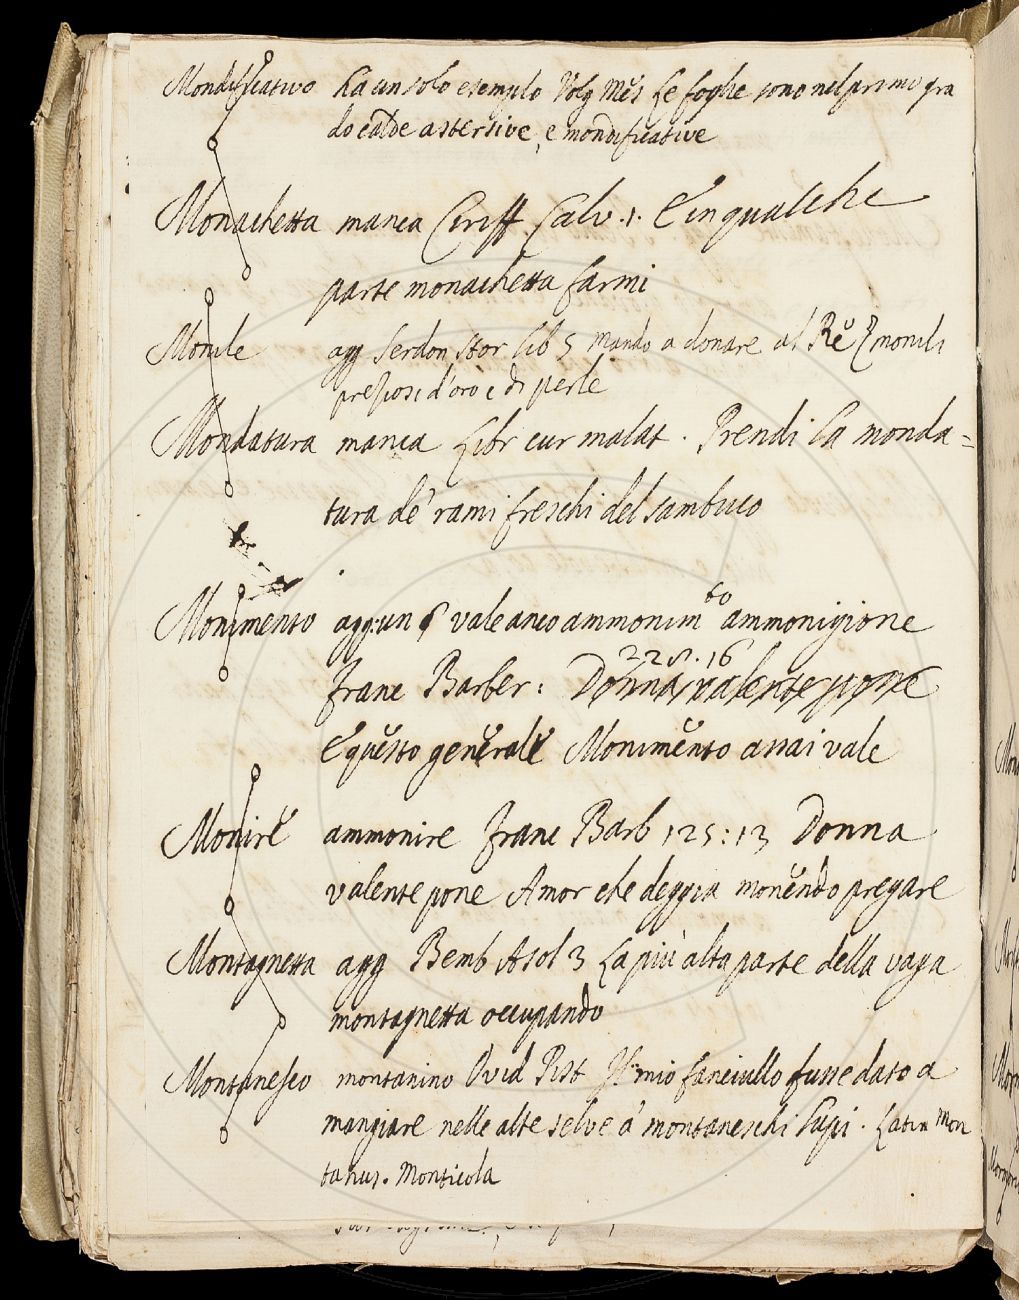 Mondificativo ha un solo esempio Volg Mes Le foglie sono nel primo gra
do calde astersive, e mondificative
Monachetta manca Ciriff Calv. 1. E in qualche
parte monachetta farmi
Monile agg Serdon stor lib 5 mando a donare al Rè 2 monili
preziosi d'oro e di perle
Mondatura manca Libr cur malat. Prendi la monda=
tura de' rami freschi del sambuco
Monimento agg: un § vale anco ammonim to ammonizione
228.16
Franc Barber: Donna valente pone
E questo generale Monimento assai vale
Monire ammonire Franc Barb 125:13 Donna
valente pone Amor che deggia monendo pregare
Montagnetta agg Bemb Asol 3 La più alta parte della vaga
montagnetta occupando
Montanesco montanino Ovid Pist Il mio fanciullo fusse dato a
mangiare nelle alte selve a' montaneschi lupi. Latin Mon
tanus. Monticola